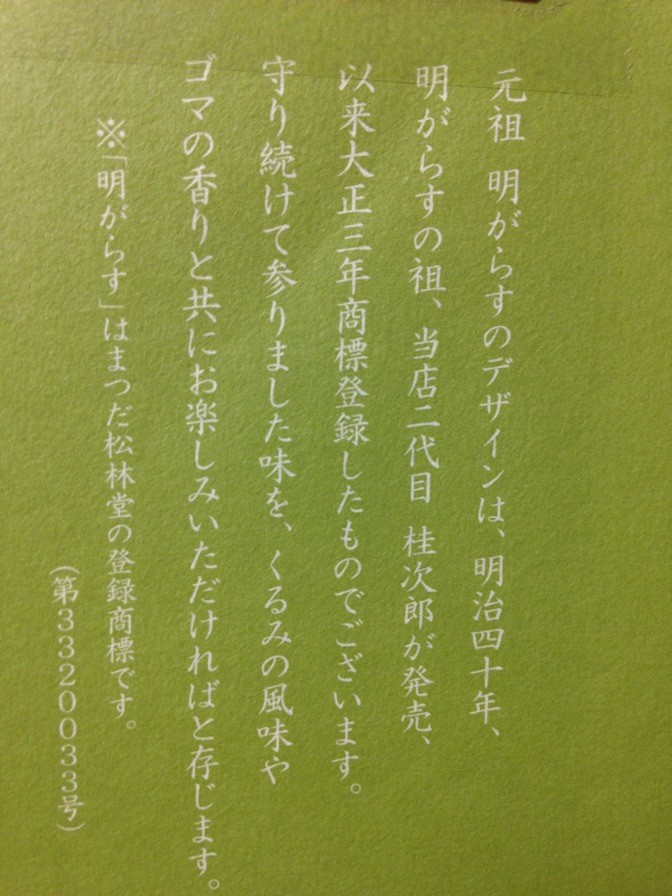 元祖 明がらすのデザインは、明治四十年、
明がらすの祖、当店二代目 桂次郎が発売、
以来大正三年商標登録したものでございます。
守り続けて参りました味を、くるみの風味や
ゴマの香りと共にお楽しみいただければと存じます。
※「明がらす」はまつだ松林堂の登録商標です。
（第3320033号）